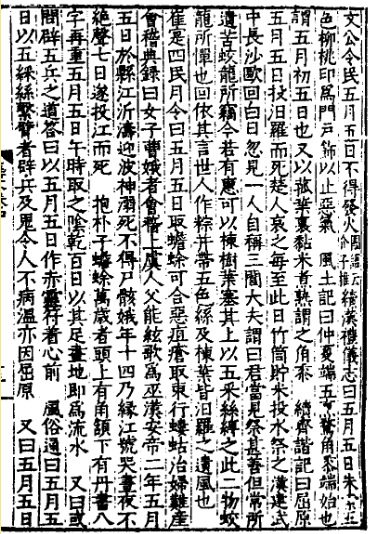 文公令民五月五日不得發火 續漢禮儀志曰五月五日朱索五
色柳桃印爲門戶飾以止惡氣 風土記曰仲夏端五烹鶩角黍端始也
謂五月初五日也又以菰葉裹黏米煮熟謂之角黍 續齊諧記曰屈原
五月五日投汨羅而死楚人哀之每至此日竹筒貯米投水祭之漢建武
中長沙歐回白日忽見一人自稱三閭大夫謂曰君當見祭甚善但常所
遺苦蛟龍所竊今若有惠可以楝樹葉塞其上以五采絲縛之此二物蛟
龍所憚也回依其言世人作粽并帶五色絲及楝葉皆汨羅之遺風也
崔寔四民月令曰五月五日取蟾蜍可合惡疽瘡取東行螻蛄治婦難產
會稽典錄曰女子曹娥者會稽上虞人父能絃歌爲巫漢安帝二年五月
五日於縣江泝濤迎波神溺死不得屍骸娥年十四乃緣江號哭晝夜不
絕聲七日遂投江而死 抱朴子蟾蜍萬歲者頭上有角頷下有丹書八
字再重五月五日午時取之陰乾百日以其足畫地即爲流水 又曰或
問辟五兵之道答曰以五月五日作赤靈符著心前 風俗通曰五月五
日以五綵絲繫臂者辟兵及鬼令人不病溫亦因屈原 又曰五月五日